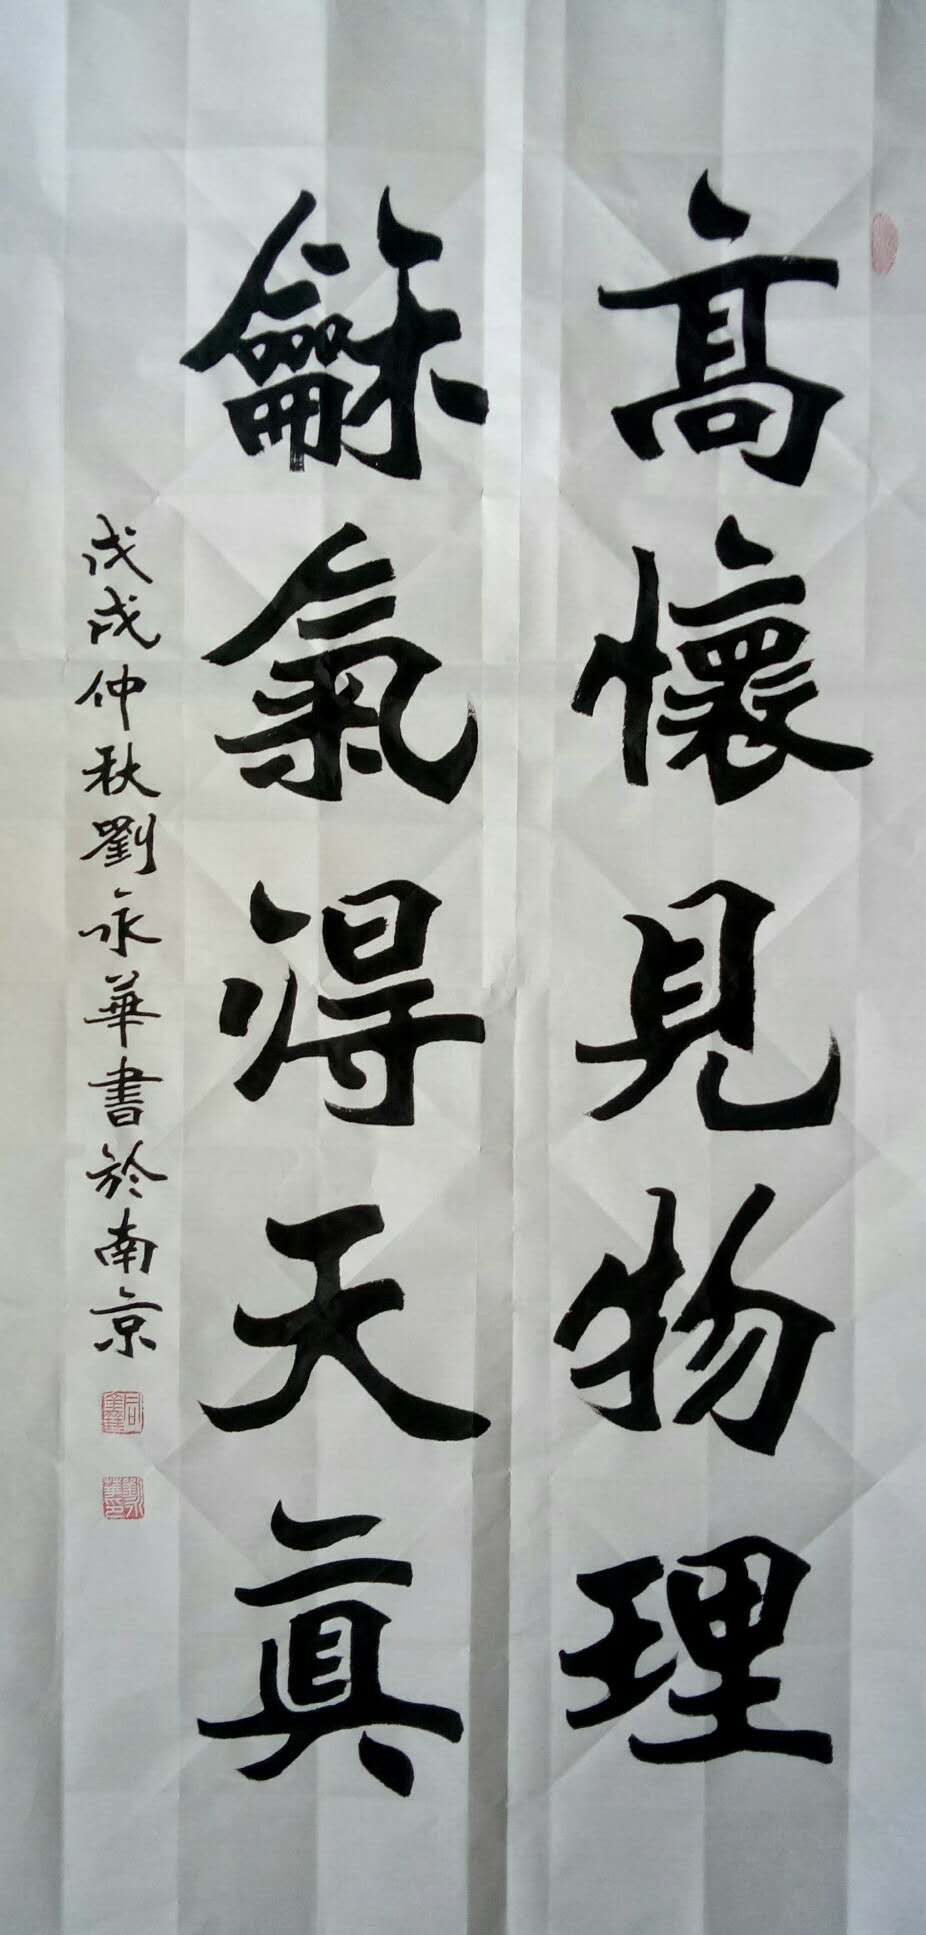 高懷見物理
龢氣得天真
戊戌仲秋劉永華書於南京